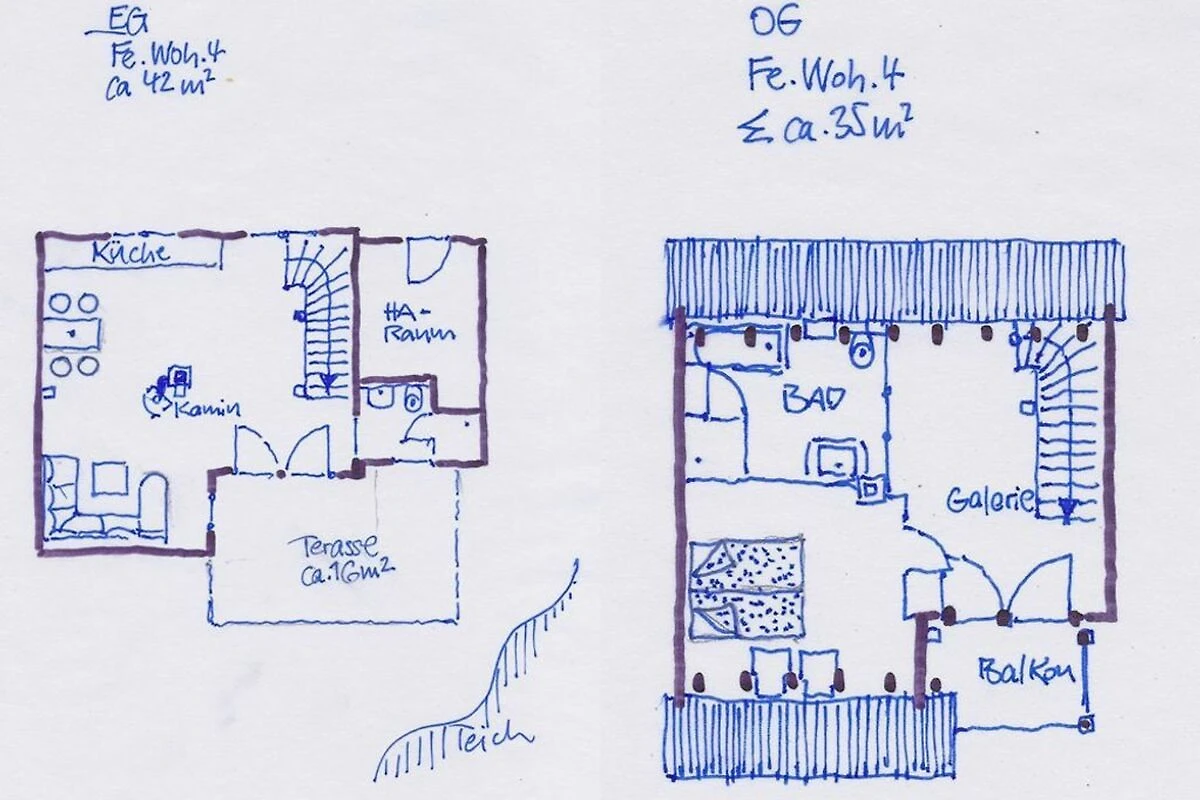 EG
Fe.Woh.4
ca 42 m²
OG
Fe.Woh.4
Σ ca.35m²
Küche
HA-
Raum
Kamin
Terasse
ca.16m²
Teich
BAD
Galerie
Balkon